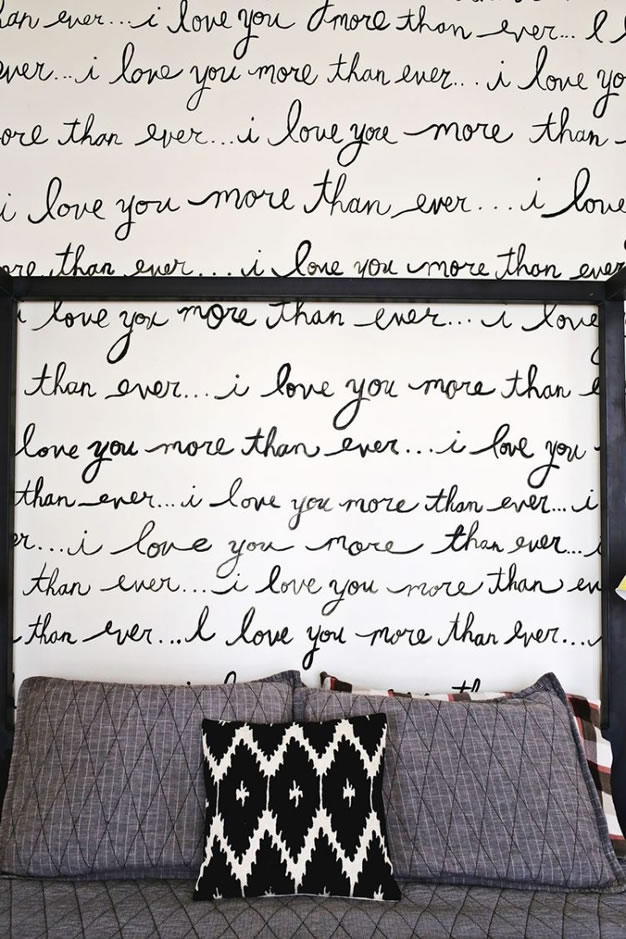 an ever...i love you more than ever... I
ever...i love you more than ever...i love yo
ore than ever...i love you more than
i love you more than ever....i love
ore than ever....i love you more than ever
i love you more than ever...i love
than ever...i love you more than
love you more than ever...i love you
than ever...i love you more than ever...i
er...i love you more than ever...i
than ever...i love you more than ev
than ever...I love you more than ever...